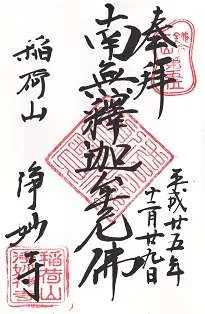 奉拝
平成廿五年
十二月廿九日
南無釋迦牟尼佛
稲荷山
浄妙寺
稲荷山
浄妙寺